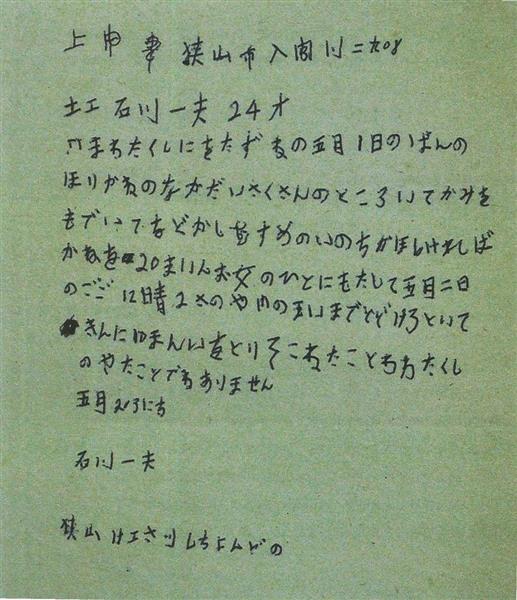 上申書 狭山市入間川二九08
土工 石川一夫 24才
はまちたくしにをたずねの五月1日のばんの
ほりかねのなかだいさくさんのところいてかみを
もでいてなどかしむすめのいのちがほしければ
かねを20まいんお女のひとにもたして五月二日
のごご12時2さのや门のまいまでとどけろといて
きんにゆまんいをとりそこねたことちわたくし
のやたことでもありません
五月 にち
石川一夫
狭山けエさツしちょんどの